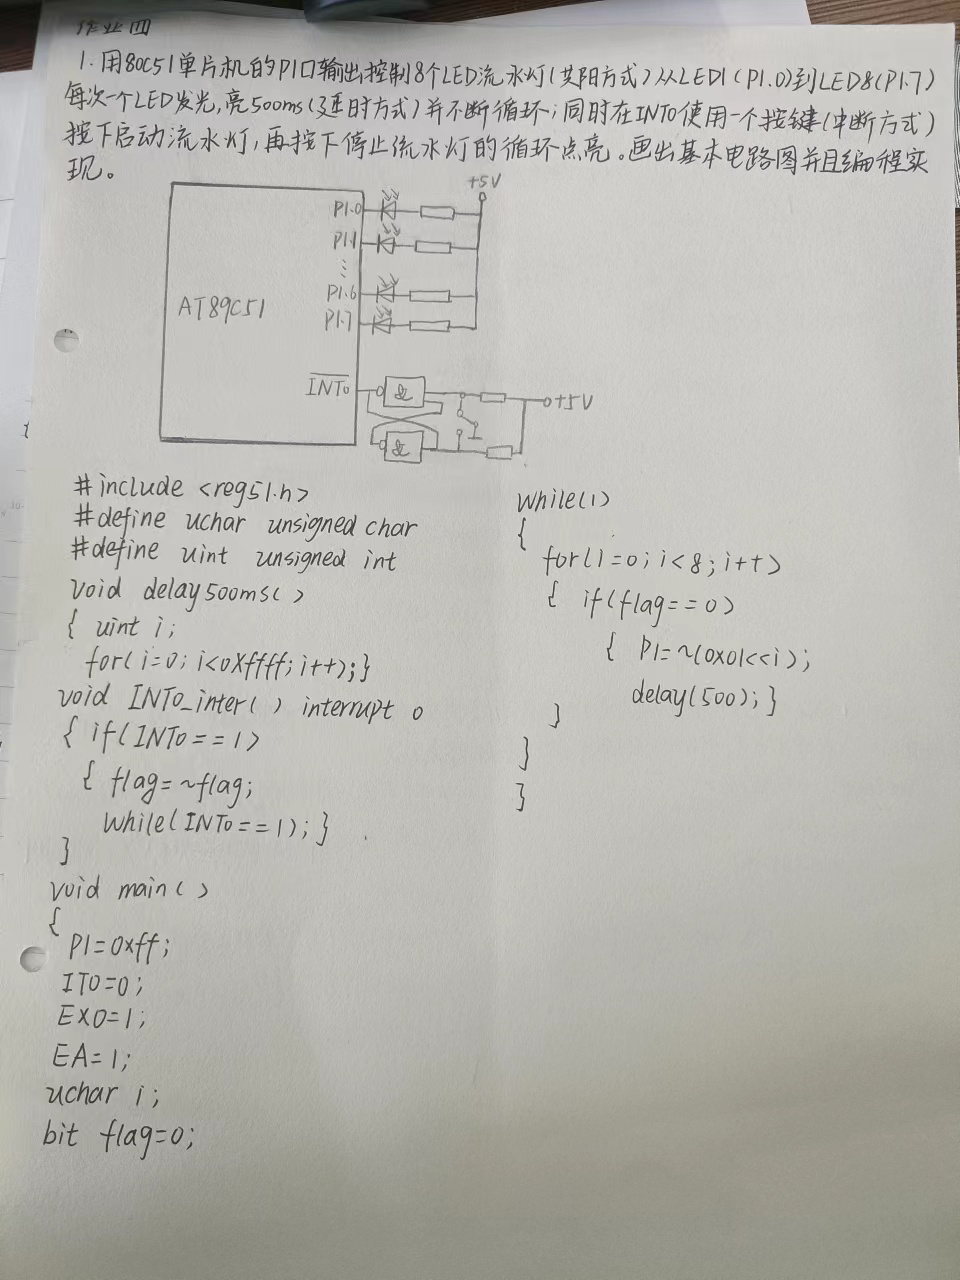 作业四
1.用80C51单片机的P1口输出控制8个LED流水灯(共阳方式)从LED1(P1.0)到LED8(P1.7)
每次一个LED发光,亮500ms(延时方式)并不断循环;同时在INT0使用一个按键(中断方式)
按下启动流水灯,再按下停止流水灯的循环点亮。画出基本电路图并且编程实
现。
+5V
P1.0
P1.1
P1.6
AT89C51
P1.7
INT0
&
+5V
&
#include <reg51.h>
#define uchar unsigned char
#define uint unsigned int
void delay500ms()
{ uint i;
for(i=0; i<0Xffff; i++);}
void INT0_inter() interrupt 0
{ if(INT0==1)
{ flag=~flag;
while(INT0==1);}
}
void main()
{
P1=0xff;
IT0=0;
EX0=1;
EA=1;
uchar i;
bit flag=0;
while(1)
{
for(i=0; i<8; i++)
{ if(flag==0)
{ P1=~(0x01<<i);
delay(500);}
}
}
}